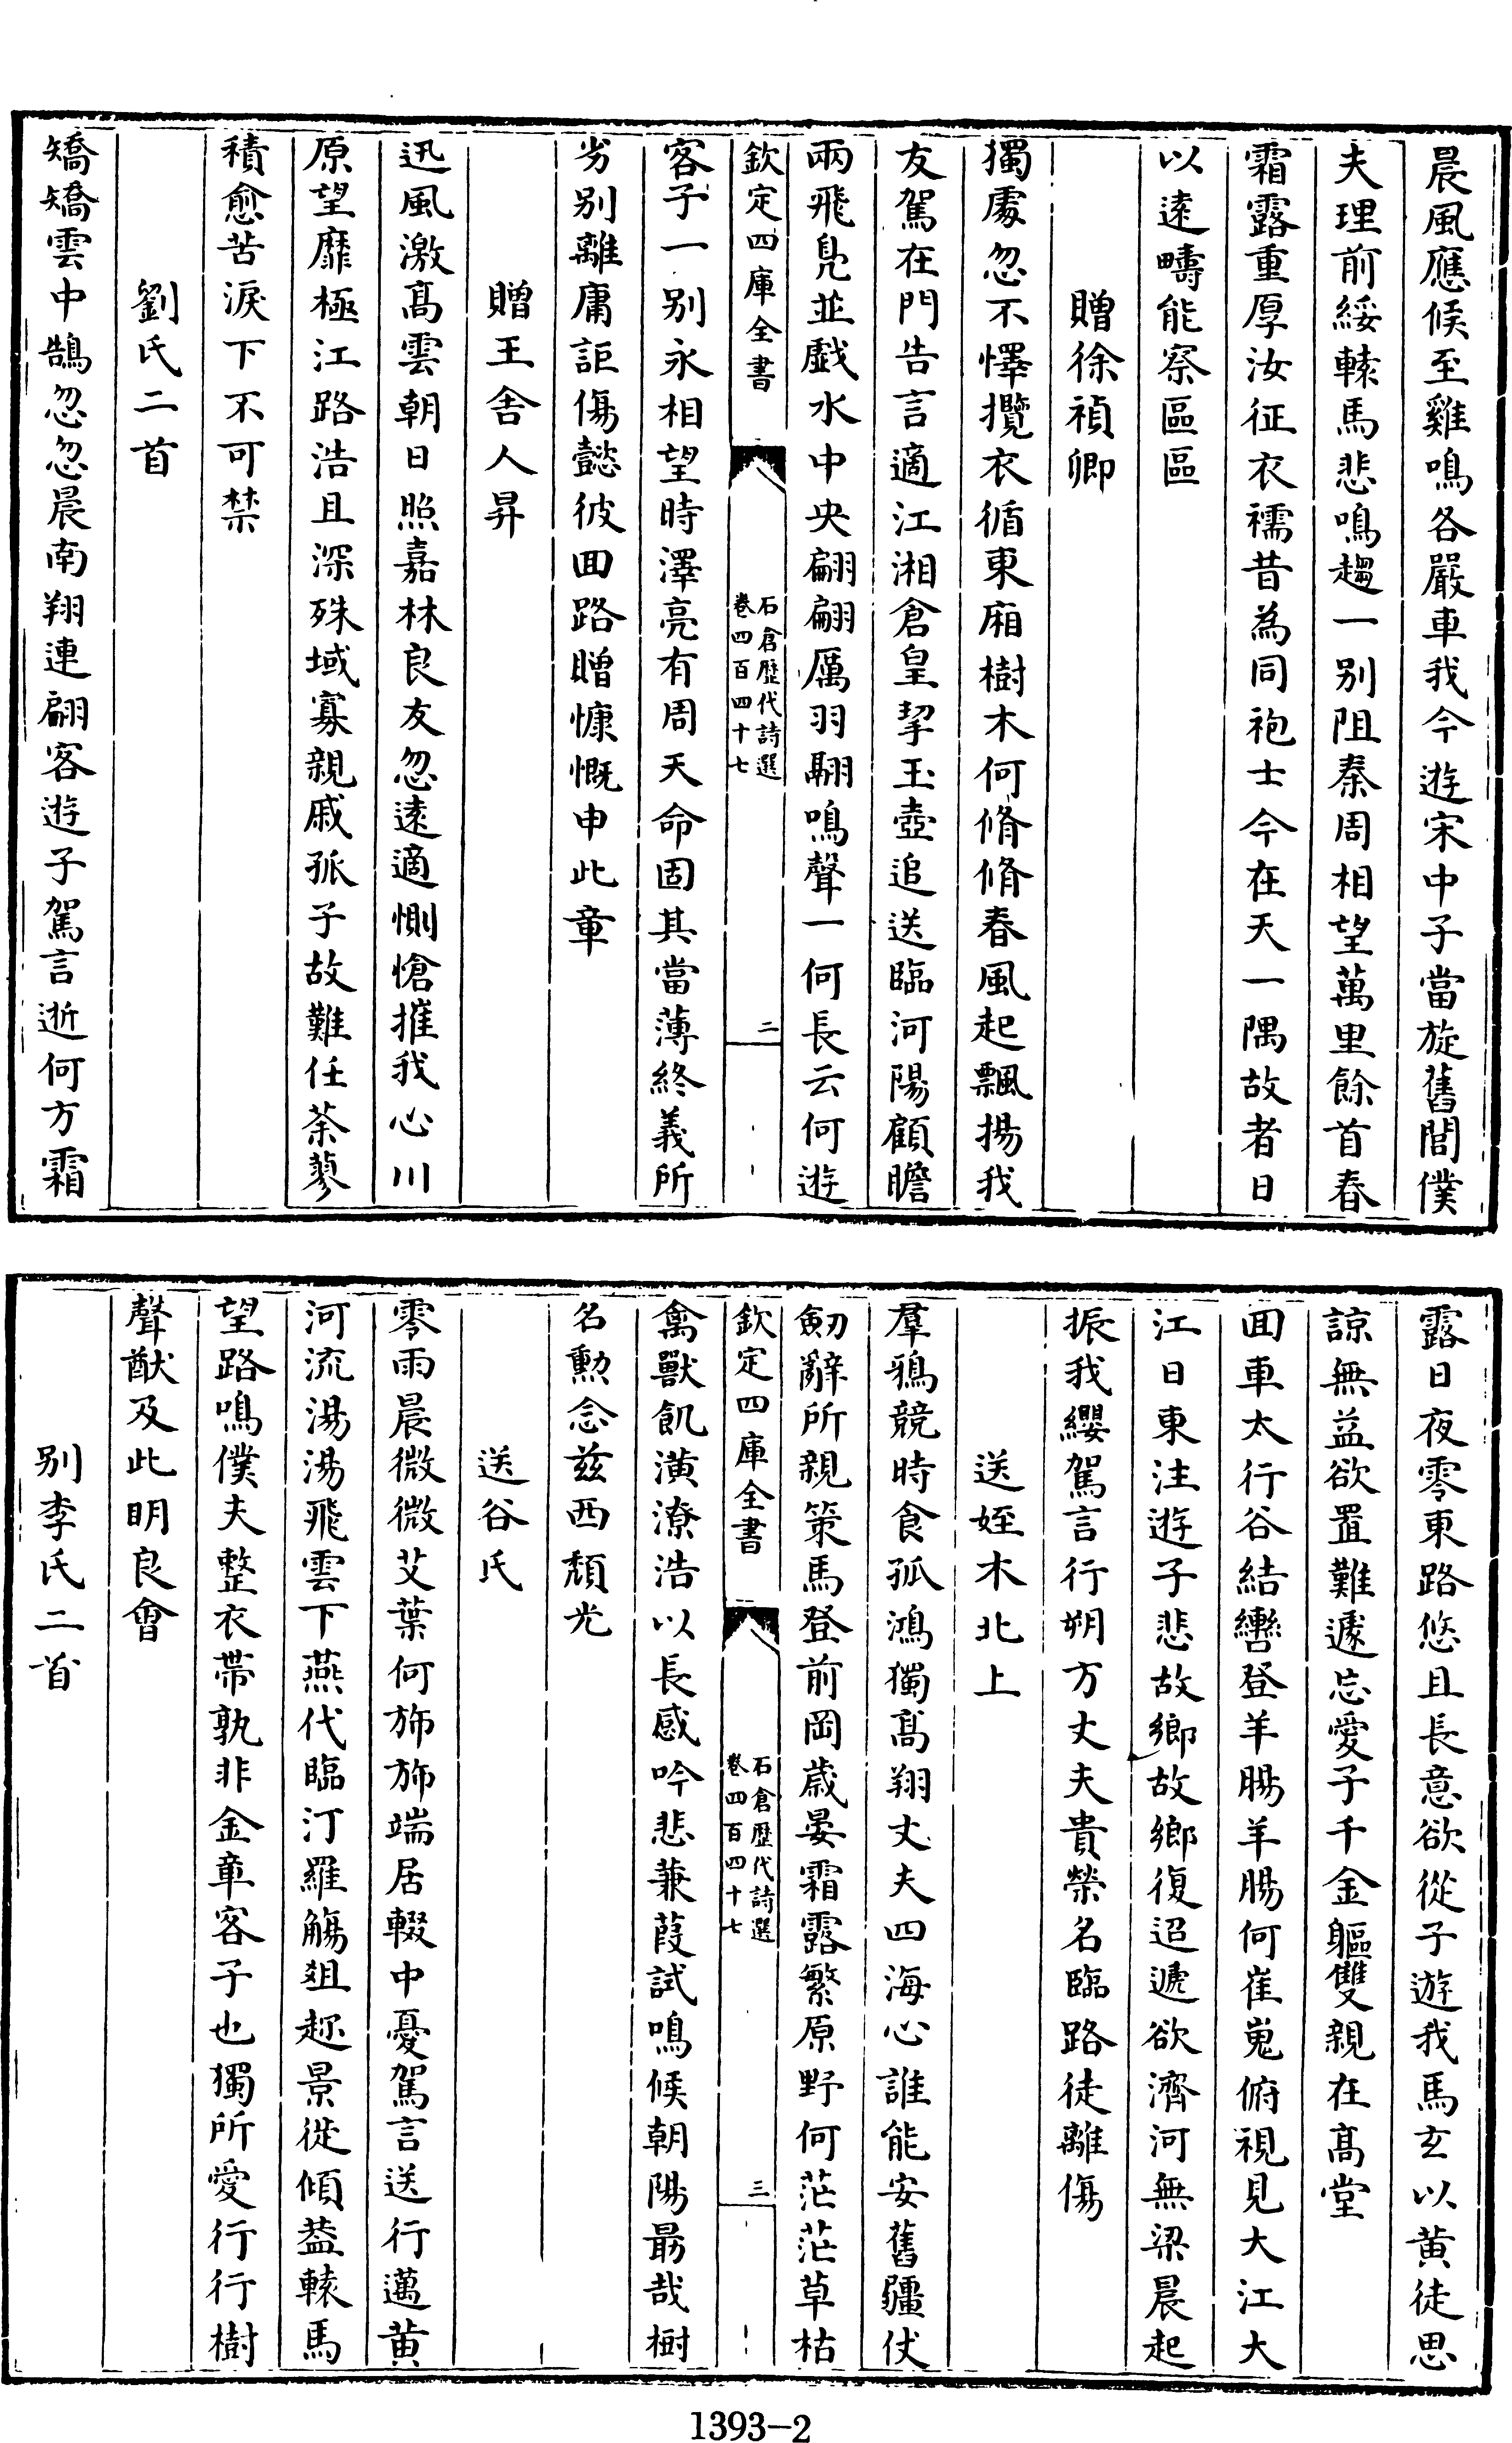 晨風應候至雞鳴各嚴車我今遊宋中子當旋舊閭僕
夫理前綏轅馬悲鳴趨一别阻秦周相望萬里餘首春
霜露重厚汝征衣襦昔為同袍士今在天一隅故者日
以遠疇能察區區
贈徐禎卿
獨處忽不懌攬衣循東廂樹木何脩脩春風起飄揚我
友駕在門告言適江湘倉皇挈玉壺追送臨河陽顧瞻
兩飛鳬並戯水中央翩翩厲羽翮鳴聲一何長云何遊
欽定四庫全書
石倉歴代詩選
卷四百四十七
二
客子一别永相望時澤亮有周天命固其當薄終義所
劣别離庸詎傷懿彼囬路贈慷慨申此章
贈王舎人昇
迅風激高雲朝日照嘉林良友忽遠適惻愴摧我心川
原望靡極江路浩且深殊域寡親戚孤子故難任荼蓼
積愈苦淚下不可禁
劉氏二首
矯矯雲中鵠忽忽晨南翔連翩客遊子駕言逝何方霜
露日夜零東路悠且長意欲從子遊我馬玄以黄徒思
諒無益欲置難遽忘愛子千金軀雙親在髙堂
囬車太行谷結轡登羊腸羊腸何崔嵬俯視見大江大
江日東注遊子悲故鄉故鄉復迢遞欲濟河無梁晨起
振我纓駕言行朔方丈夫貴榮名臨路徒離傷
送姪木北上
羣鴉競時食孤鴻獨髙翔丈夫四海心誰能安舊疆仗
劒辭所親策馬登前岡歳晏霜露繁原野何茫茫草枯
欽定四庫全書
石倉歴代詩選
卷四百四十七
三
禽獸飢潢潦浩以長感吟悲蒹葭試鳴候朝陽勗哉樹
名勲念兹西頽光
送谷氏
零雨晨微微艾葉何斾斾端居輟中憂駕言送行邁黄
河流湯湯飛雲下燕代臨汀羅觴爼趂景從傾葢轅馬
望路鳴僕夫整衣帶孰非金章客子也獨所愛行行樹
聲猷及此明良會
别李氏二首
1393-2